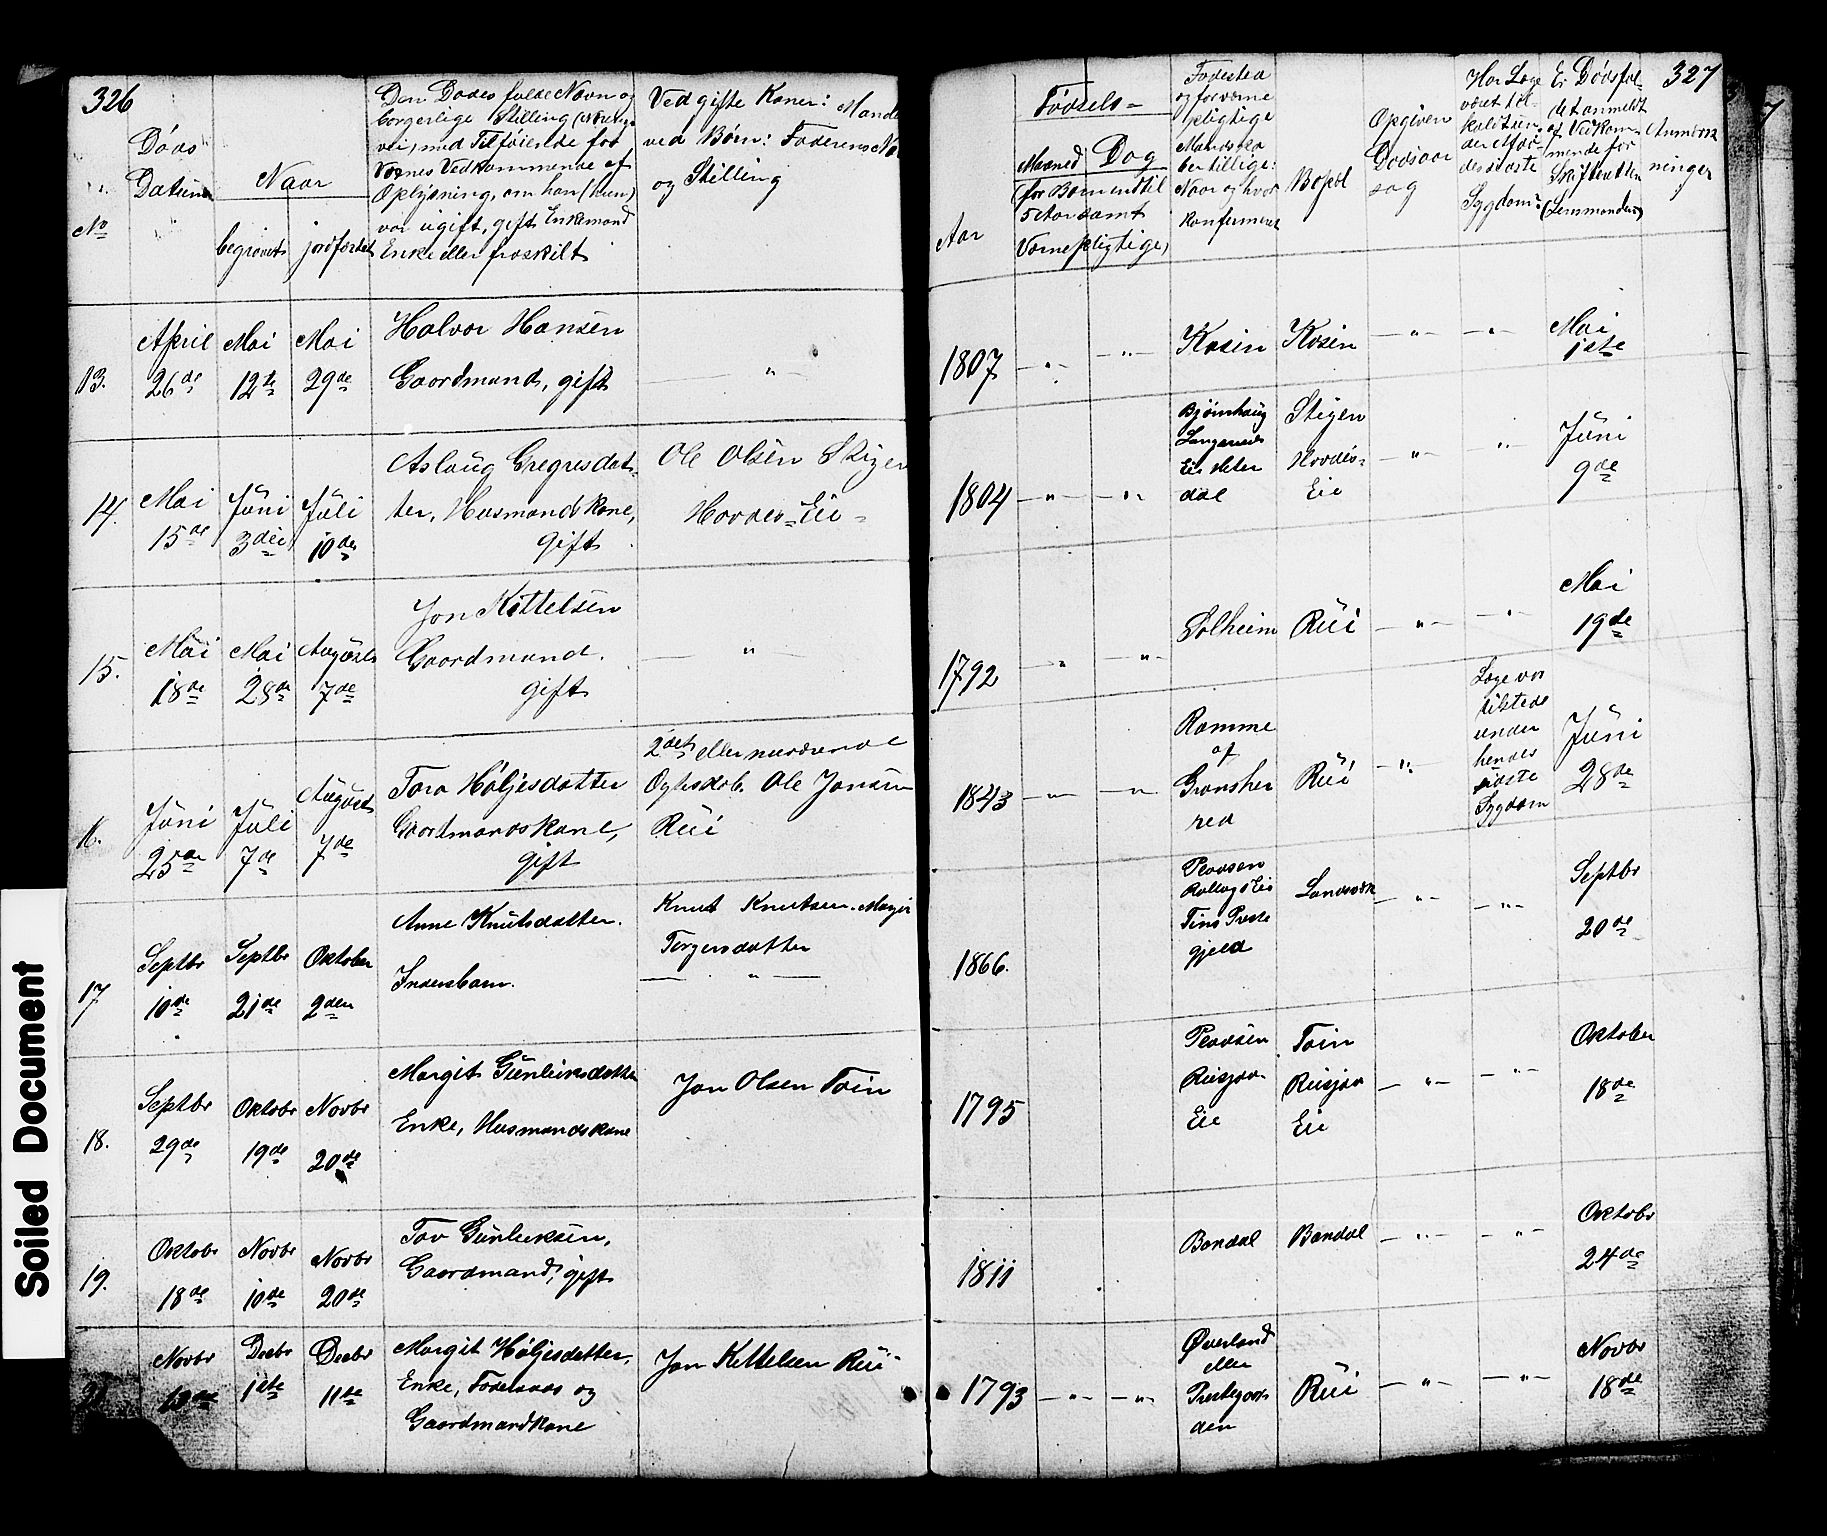 326
Døds
Datum
No
Naar
begravet
jordfæstet
Den Dødes fulde Navn og
borgerlige Stilling
med Tilføiende for
Vedkommende af
Oplysning, om han (hun)
var ugift, gift Enkemand
Enke eller fraskilt
Ved gifte Koner: Mande
ved Børn: Faderens Na
og Stilling
13.
April
26de
Mai
12te
Mai
29de
Halvor Hansen
Gaardmand, gift
— " —
14.
Mai
15de
Juni
3die
Juli
10de
Aslaug Gregersdat-
ter, Husmandskone,
gift
Ole Olsen Stigen
Hovdes-Eie
15.
Mai
18de
Mai
28de
August
7de
Jon Kittelsen
Gaardmand.
gift
— " —
16.
Juni
25de
Juli
7de
August
7de
Tora Høljesdatter
Gaardmandskone,
gift
2det eller nuværende
Ægtesk. Ole Jonsen
Rui
17
Septbr
10de
Septbr
21de
Oktober
2den
Anne Knutsdatter.
Inderstbarn.
Knut Knutsen. Margit
Torgersdatter
— " —
18.
Septbr
29de
Oktobr
19de
Novbr
20de
Margit Gunleiksdatter
Enke, Husmandskone
Jon Olsen Toin
19.
Oktobr
18de
Novbr
10de
Novbr
20de
Tov Gunleiksen,
Gaardmand, gift
Novbr
Decbr
1ste
Decbr
11te
Margit Høljesdatter,
Enke, Føderaads og
Gaardmandkone
Jon Kittelsen Rui
327
Fødsels-
Aar
Maaned Dag
(for Børn indtil
5 Aar samt
Værnepligtige)
Fødested
og for værne
pligtige
Mandskab
tillige:
Naar og hvor
konfirmeret
Bopæl
Opgiven
Dødsaar
sag
Har Læge
været til-
kaldt un-
der
des sidste
Sygdom?
Er Dødsfal-
det anmeldt
af Vedkom-
mende for
Skifteretten
(Lensmanden)
Anmærk
ninger
1807 — " — — " — Kosin Kosin — " — — " —
Mai
1ste
1804 — " — — " —
Bjørnhaug
Eie
dal
Stigen
Hovdes-
Eie
— " — — " —
Juni
9de
1792 — " — — " — Solheim Rui — " — — " —
Mai
19de
1843 — " — — " —
Ramme
af
Gransher
red
Rui
— " —
Læge var
tilstede
under
hendes
sidste
Sygdom
Juni
28de
1866.
Eie
Tins Præste
gjeld
Landsværk
— " — — " —
Septbr
20de
1795
Rusjøv
Eie
Toin
Rusjøv
Eie
— " — — " —
Oktober
18de
1811 Bandal Bandal — " — — " —
Oktobr
24de
1793 — " — — " —
Øverland
eller
Prestegaar
den
Rui
— " — — " —
Novbr
18de
Soiled Document